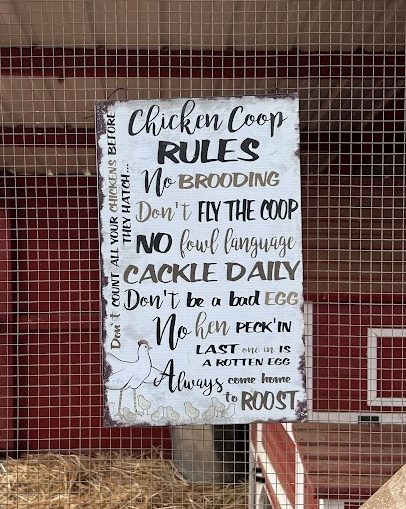 Chicken Coop
RULES
No BROODING
Don't FLY THE COOP
NO fowl language
CACKLE DAILY
Don't be a bad EGG
No hen PECK'IN
LAST one in IS
A ROTTEN EGG
Always come home
to ROOST
Don't COUNT ALL YOUR CHICKENS BEFORE
THEY HATCH...